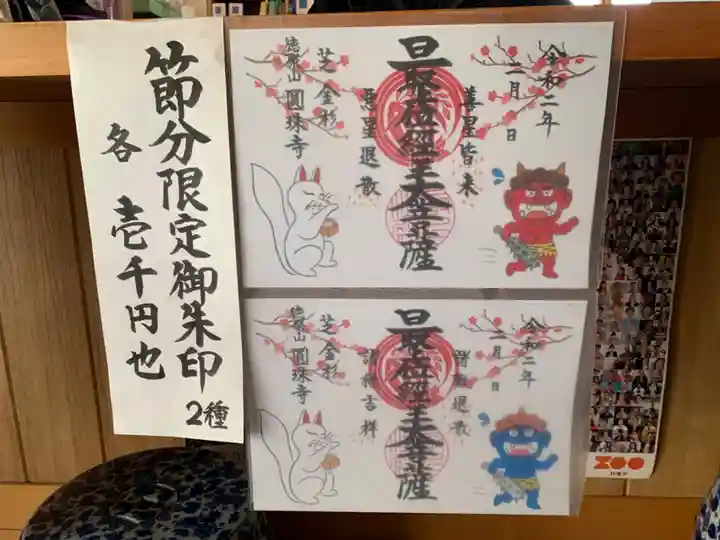 節分限定御朱印
各 壱千円也
2種
令和二年
二月 日
善星皆来
最上位経王大菩薩
悪星退散
芝金杉
圓珠寺
令和二年
二月 日
最上位経王大菩薩
諸神吉祥
芝金杉
圓珠寺
ZOO